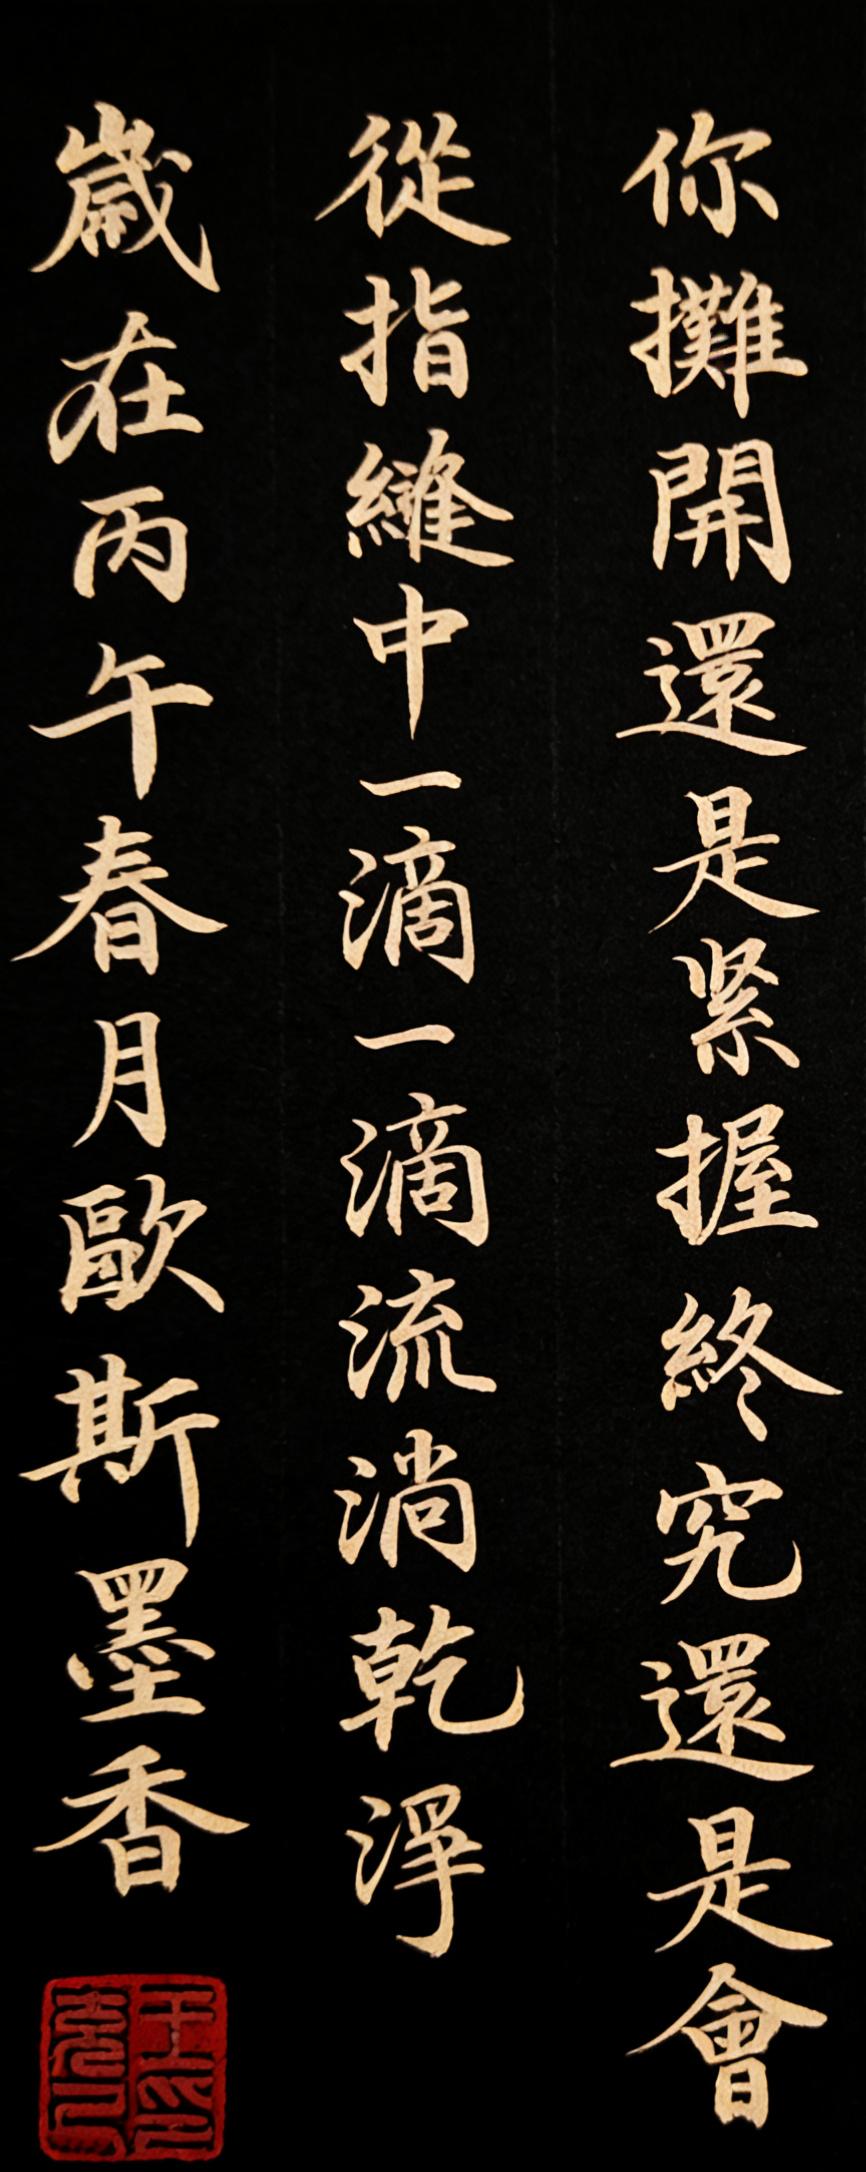 你攤開還是紧握終究還是會
從指縫中一滴一滴流淌乾淨
歲在丙午春月歐斯墨香